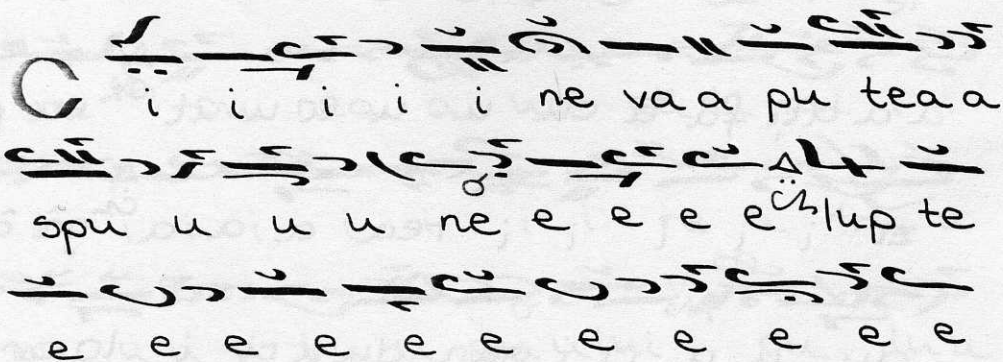 C i i i i i ne va a pu tea a
spu u u u ne e e e e lup te
e e e e e e e e e e